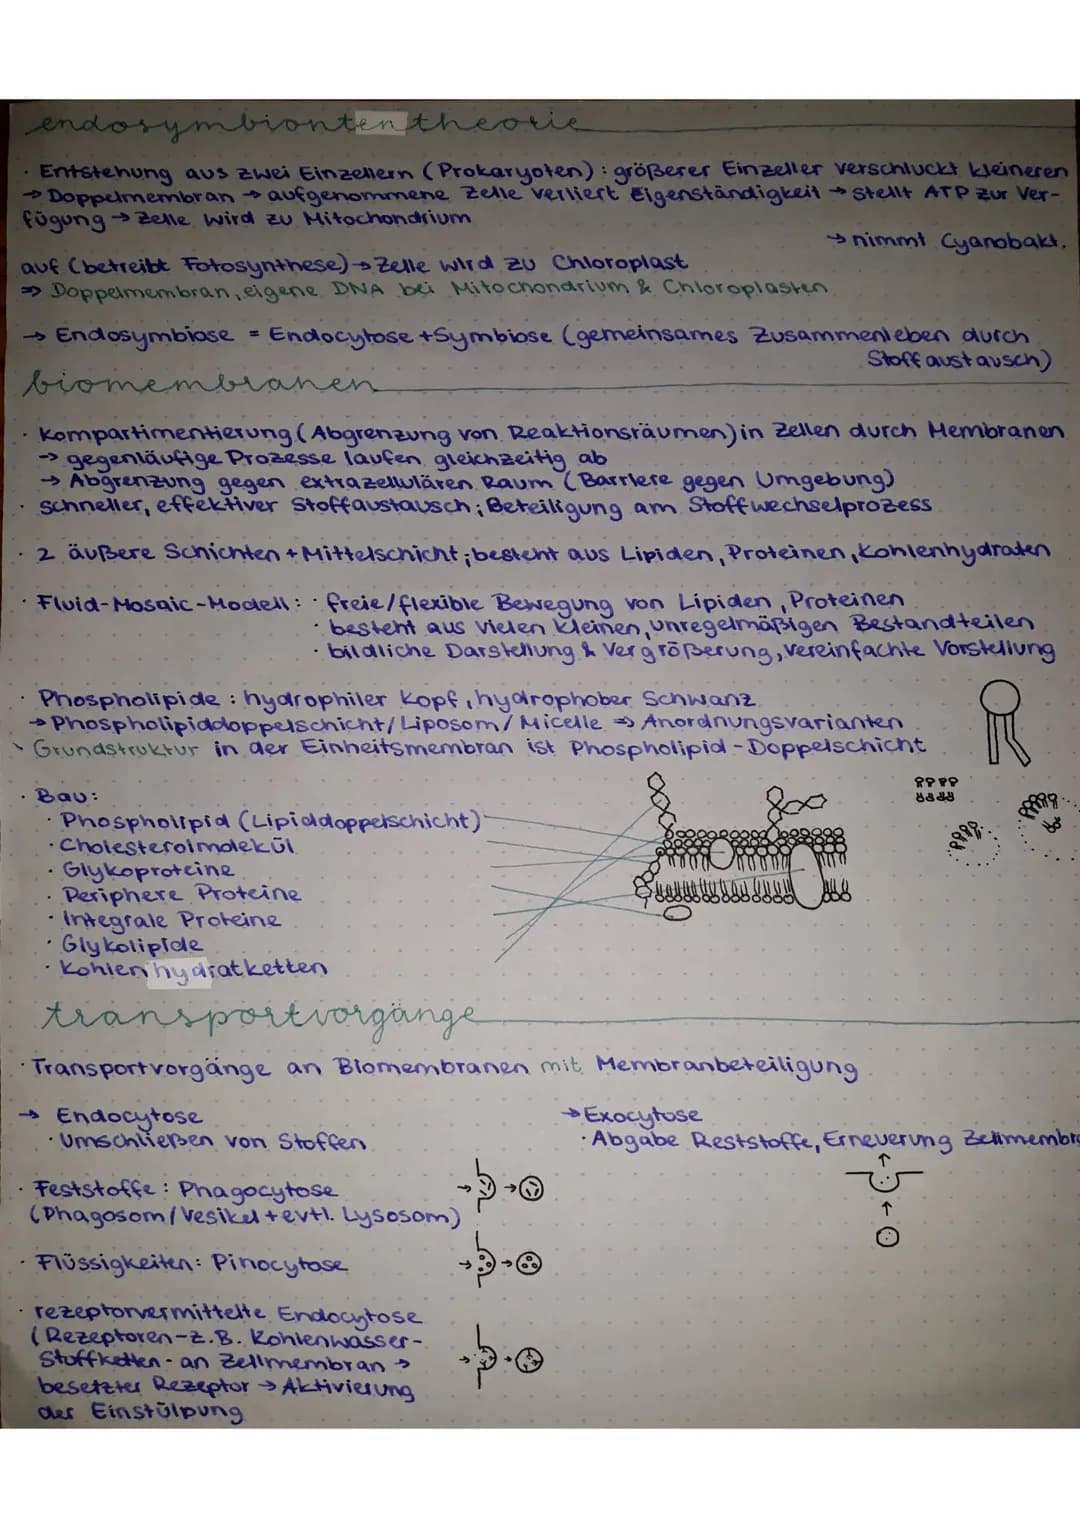 endosymbiontentheorie
· Entstehung aus zwei Einzellern (Prokaryoten): größerer Einzeller verschluckt kleineren
→ Doppelmembran → aufgenommene Zelle verliert Eigenständigkeit → stellt ATP zur Ver-
fügung → Zelle wird zu Mitochondrium
→ nimmt Cyanobakt.
auf (betreibt Fotosynthese) → Zelle wird zu Chloroplast
⇒ Doppelmembran, eigene DNA bei Mitochondrium & Chloroplasten
→ Endosymbiose = Endocytose + Symbiose (gemeinsames Zusammenleben durch
Stoffaustausch)
biomembranen
· Kompartimentierung (Abgrenzung von Reaktionsräumen) in Zellen durch Membranen
→ gegenläufige Prozesse laufen gleichzeitig ab
→ Abgrenzung gegen extrazellulären Raum (Barriere gegen Umgebung)
· schneller, effektiver Stoffaustausch; Beteiligung am Stoffwechselprozess
· 2 äußere Schichten + Mittelschicht; besteht aus Lipiden, Proteinen, Kohlenhydraten
· Fluid-Mosaic-Modell: · freie/flexible Bewegung von Lipiden, Proteinen
· besteht aus vielen kleinen, unregelmäßigen Bestandteilen
· bildliche Darstellung & Vergrößerung, vereinfachte Vorstellung
· Phospholipide: hydrophiler Kopf, hydrophober Schwanz
→ Phospholipiddoppelschicht/Liposom/Micelle ⇒ Anordnungsvarianten
· Grundstruktur in der Einheitsmembran ist Phospholipid-Doppelschicht
· Bau:
· Phospholipid (Lipiddoppelschicht)
· Cholesterolmolekül
· Glykoproteine
· Periphere Proteine
· Integrale Proteine
· Glykolipide
· Kohlenhydratketten
transportvorgänge
· Transportvorgänge an Biomembranen mit Membranbeteiligung
→ Endocytose
· Umschließen von Stoffen
→ Exocytose
· Abgabe Reststoffe, Erneuerung Zellmembra
· Feststoffe: Phagocytose
(Phagosom/Vesikel + evtl. Lysosom)
· Flüssigkeiten: Pinocytose
· rezeptorvermittelte Endocytose
(Rezeptoren - z.B. Kohlenwasser-
stoffketten - an Zellmembran →
besetzter Rezeptor → Aktivierung
der Einstülpung